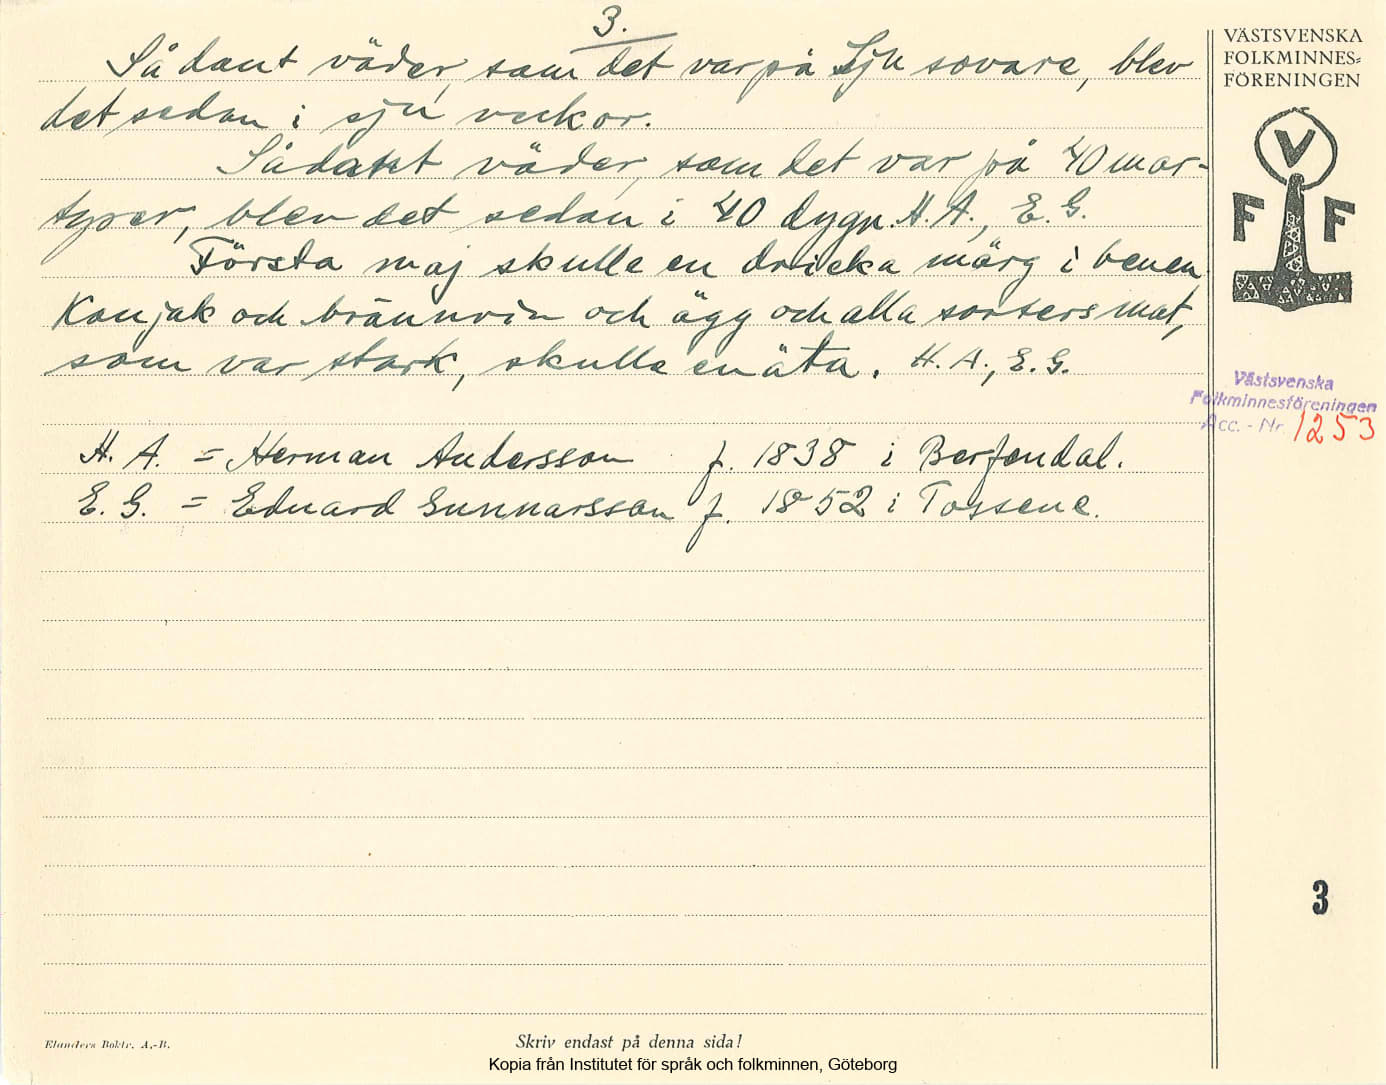 3.
Sådant väder, som det var på Sju sovare, blev
det sedan i sju veckor.
Sådant väder, som det var på 40 mar-
tyrer, blev det sedan i 40 dygn. H. A., E. G.
Första maj skulle en dricka märg i benen.
Konjak och brännvin och ägg och alla sorters mat,
som var stark, skulle en äta. H. A., E. G.
H. A. = Herman Andersson f. 1838 i Berfendal.
E. G. = Edvard Gunnarsson f. 1852 i Tossene.
VÄSTSVENSKA
FOLKMINNES=
FÖRENINGEN
V
F F
Västsvenska
Folkminnesföreningen
Acc. - Nr. 1253
3
Elanders Boktr. A.-B.
Skriv endast på denna sida!
Kopia från Institutet för språk och folkminnen, Göteborg